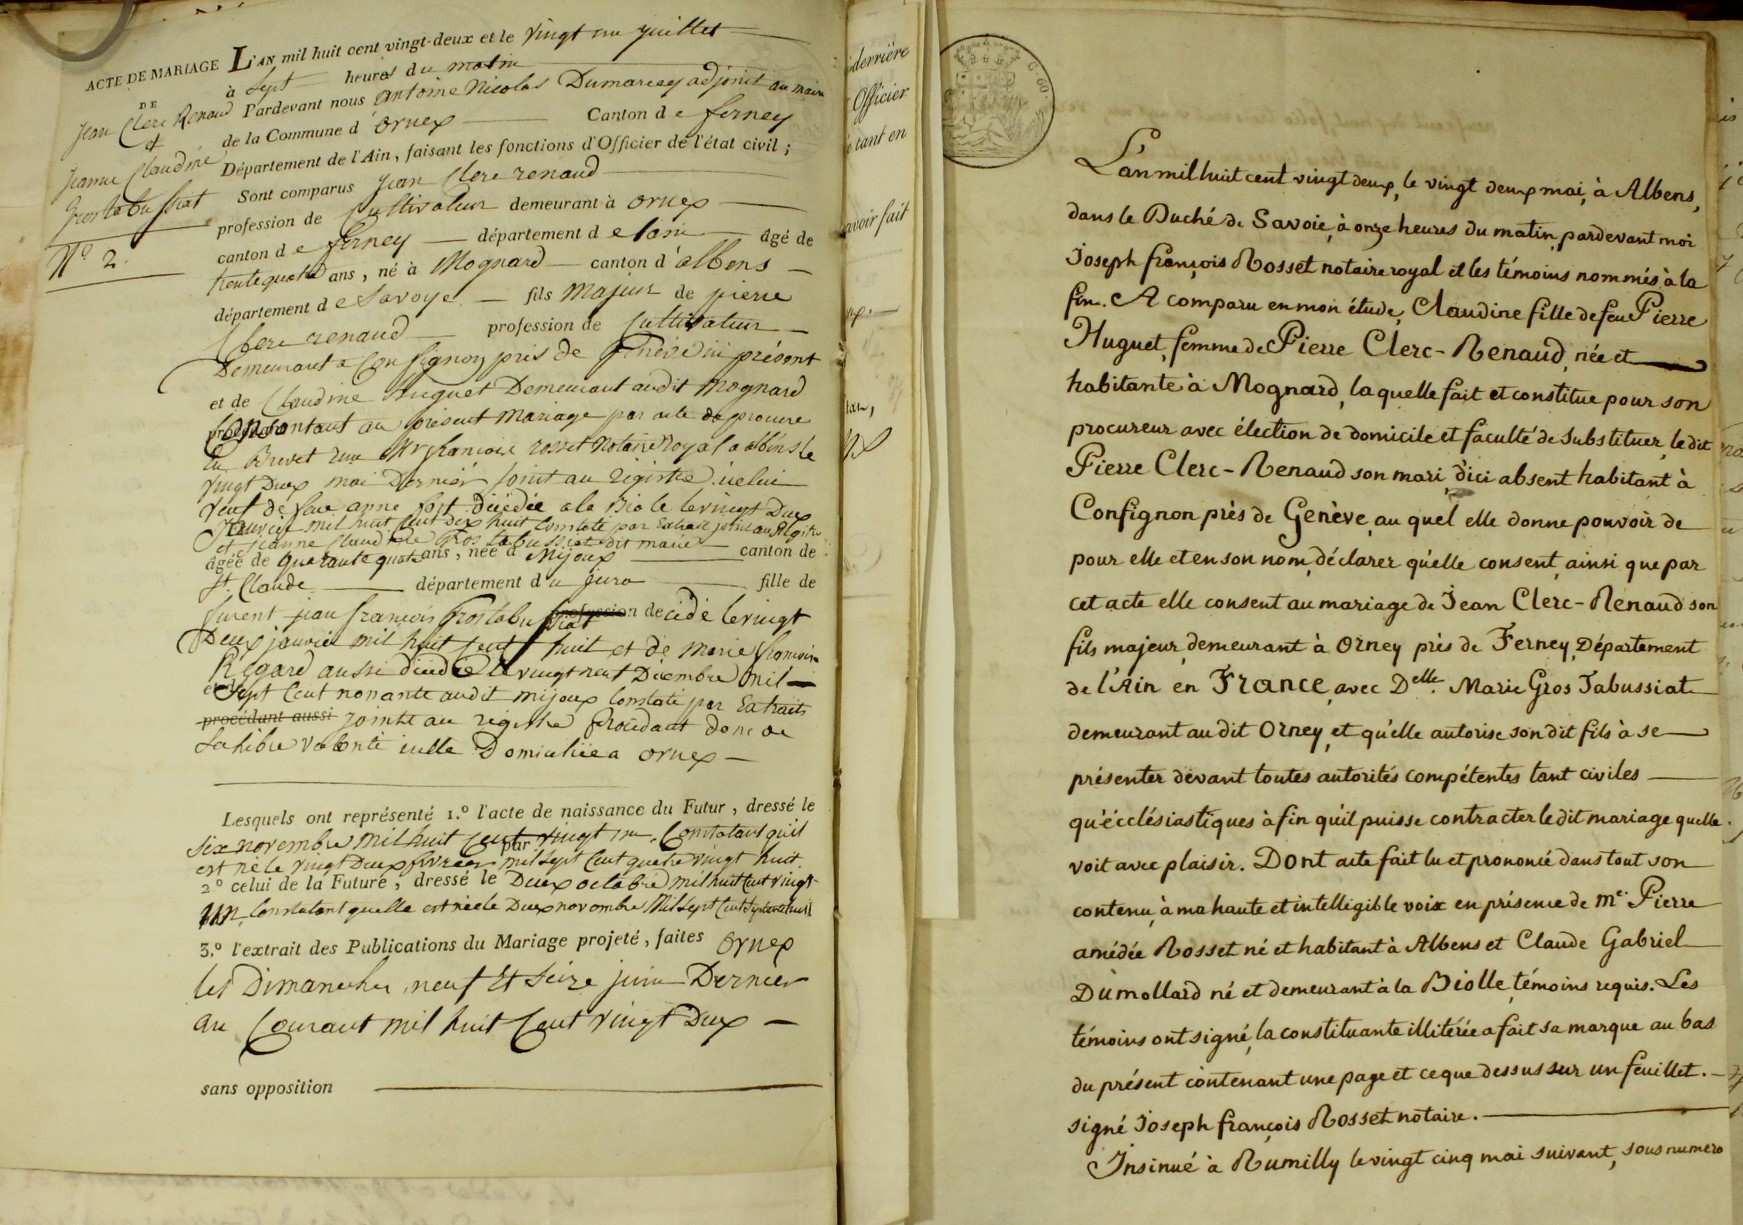 ACTE DE MARIAGE L'AN mil huit cent vingt-deux et le vingt un juillet
à Sept heures du matin
DE
Jean Clerc Renaud Pardevant nous antoine Nicolas Dumarcey adjoint au maire
et
de la Commune d'Ornex Canton de ferney
Jeanne Claudine
Département de l'Ain, faisant les fonctions d'Officier de l'état civil ;
Sont comparus Jean Clerc renaud
profession de Cultivateur demeurant à ornex
N° 2.
canton de ferney département de lain âgé de
trente quatre ans, né à Mognard canton d'albens
département de Savoye fils Majeur de pierre
Clerc renaud profession de Cultivateur
Demeurant a Confignon près de Genève ici présent
et de Claudine Huguet Demeurant audit Mognard
au présent Mariage par acte de procure
en Brevet françois rosset Notaire Royal a albens le
vingt Deux mai Dernier joint au registre icelui
veuf de anne décédée a la Biole le vingt Deux
Janvier mil huit Cent dix huit Constaté par Extrait joint au Registre
et Jeanne Claudine Gros tabussiat dit marie
âgée de quarante quatre ans, née à Mijoux canton de
St. Claude département du jura fille de
jean françois Gros tabussiat profession décédé le vingt
Deux janvier mil huit Cent huit et de Marie
Régard aussi décédée le vingt neuf Décembre Mil
Sept Cent nonante audit mijoux Constaté par Extraits
procédant aussi joints au registre procédant donc de
Sa libre volonté icelle Domiciliée a ornex
Lesquels ont représenté 1.° l'acte de naissance du Futur, dressé le
Six novembre mil huit Cent vingt un, Constatant qu'il
est né le vingt Deux fevrier mil Sept Cent quatre vingt huit
2° celui de la Future, dressé le Deux octobre mil huit Cent vingt
un, Constatant quelle est née le Deux novembre Mil Sept Cent Septante huit
3.° l'extrait des Publications du Mariage projeté, faites Ornex
les Dimanches neuf Et Seize juin Dernier
au Courant mil huit Cent vingt Deux
sans opposition
derrière
Officier
tant en
avoir fait
L'an mil huit cent vingt deux, le vingt deux mai, à Albens,
dans le Duché de Savoie, à onze heures du matin, pardevant moi
Joseph françois Rosset notaire royal et les témoins nommés à la
fin. A comparu en mon étude, Claudine fille de feu Pierre
Huguet, femme de Pierre Clerc-Renaud, née et
habitante à Mognard, la quelle fait et constitue pour son
procureur avec élection de domicile et faculté de substituer, le dit
Pierre Clerc-Renaud son mari, d'ici absent habitant à
Confignon près de Genève, au quel elle donne pouvoir de
pour elle et en son nom, déclarer qu'elle consent, ainsi que par
cet acte elle consent au mariage de Jean Clerc-Renaud son
fils majeur, demeurant à Orney près de Ferney, Département
de l'Ain en France, avec Delle. Marie Gros Tabussiat
demeurant au dit Orney, et qu'elle autorise son dit fils à se
présenter devant toutes autorités compétentes tant civiles
qu'écclésiastiques à fin qu'il puisse contracter le dit mariage quelle
voit avec plaisir. Dont acte fait lu et prononcé dans tout son
contenu, à ma haute et intelligible voix en présence de me. Pierre
amédée Rosset né et habitant à Albens et Claude Gabriel
Dumollard né et demeurant à la Biolle, témoins requis. Les
témoins ont signé, la constituante illitérée a fait sa marque au bas
du présent contenant une page et ce que dessus sur un feuillet.
signé Joseph françois Rosset notaire.
Insinué à Rumilly le vingt cinq mai suivant, sous numero